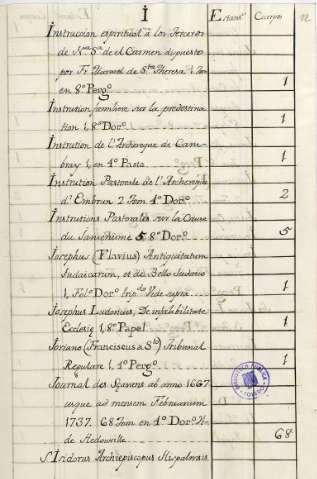 I Estant.ˢ Cuerpos
Instruccion espiritual à los Terceros
de N.ʳᵃ S.ʳᵃ de el Carmen dispuesto
por Fr. de S.ᵗᵃ Theresa 1. Tom
en 8º Perg.º 1
Instrution familiere sur la predestina
tion 1, 8º Dor.º 1
Instrution de l'Archeveque de Cam-
bray 1, en 4º Pasta 1
Instrution Pastorale de l'Archeveque
d'Embrun 2 Tom 4º Dor.º 2
Instrutions Pastorales sur la Cause
du Jansenisme 5 8º Dor.º 5
Josephus (Flavius) Antiquitatum
Judaicarum, et de Bello Judaico
1, Fol.º Dor.º Vide supra 1
Josephus Ludovicus, De infalibilitate
Ecclesię 1, 8º Papel 1
Soriano (Franciscus a S.ᵗᵒ) Tribunal
Regulare 1, 4º Perg.º 1
Journal des Sçavans ab anno 1667
usque ad mensem Februarium
1737. 68 Tom en 4º Dor.º
de Hedouville 68
S. Isidorus Archiepiscopus Hispalensis